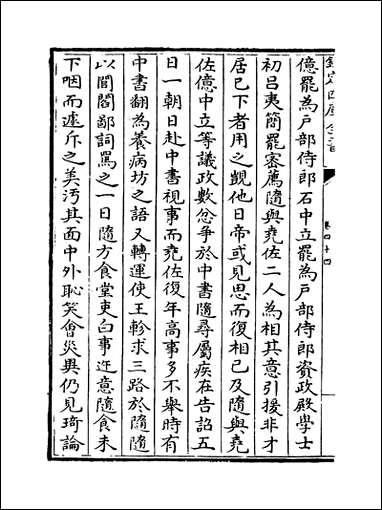 欽定四庫全書
卷四十四
億罷為户部侍郎石中立罷為户部侍郎資政殿學士
初吕夷簡罷密薦隨與堯佐二人為相其意引援非才
居已下者用之覬他日帝或見思而復相已及隨與堯
佐億中立等議政數忿爭於中書隨尋屬疾在告詔五
日一朝日赴中書視事而堯佐復年高事多不舉時有
中書翻為養病坊之語又轉運使王軫求三路於隨隨
以閭閻鄙詞罵之一日隨方食堂吏白事迕意隨食未
下咽而遽斥之羙汚其面中外恥笑會災異仍見琦論